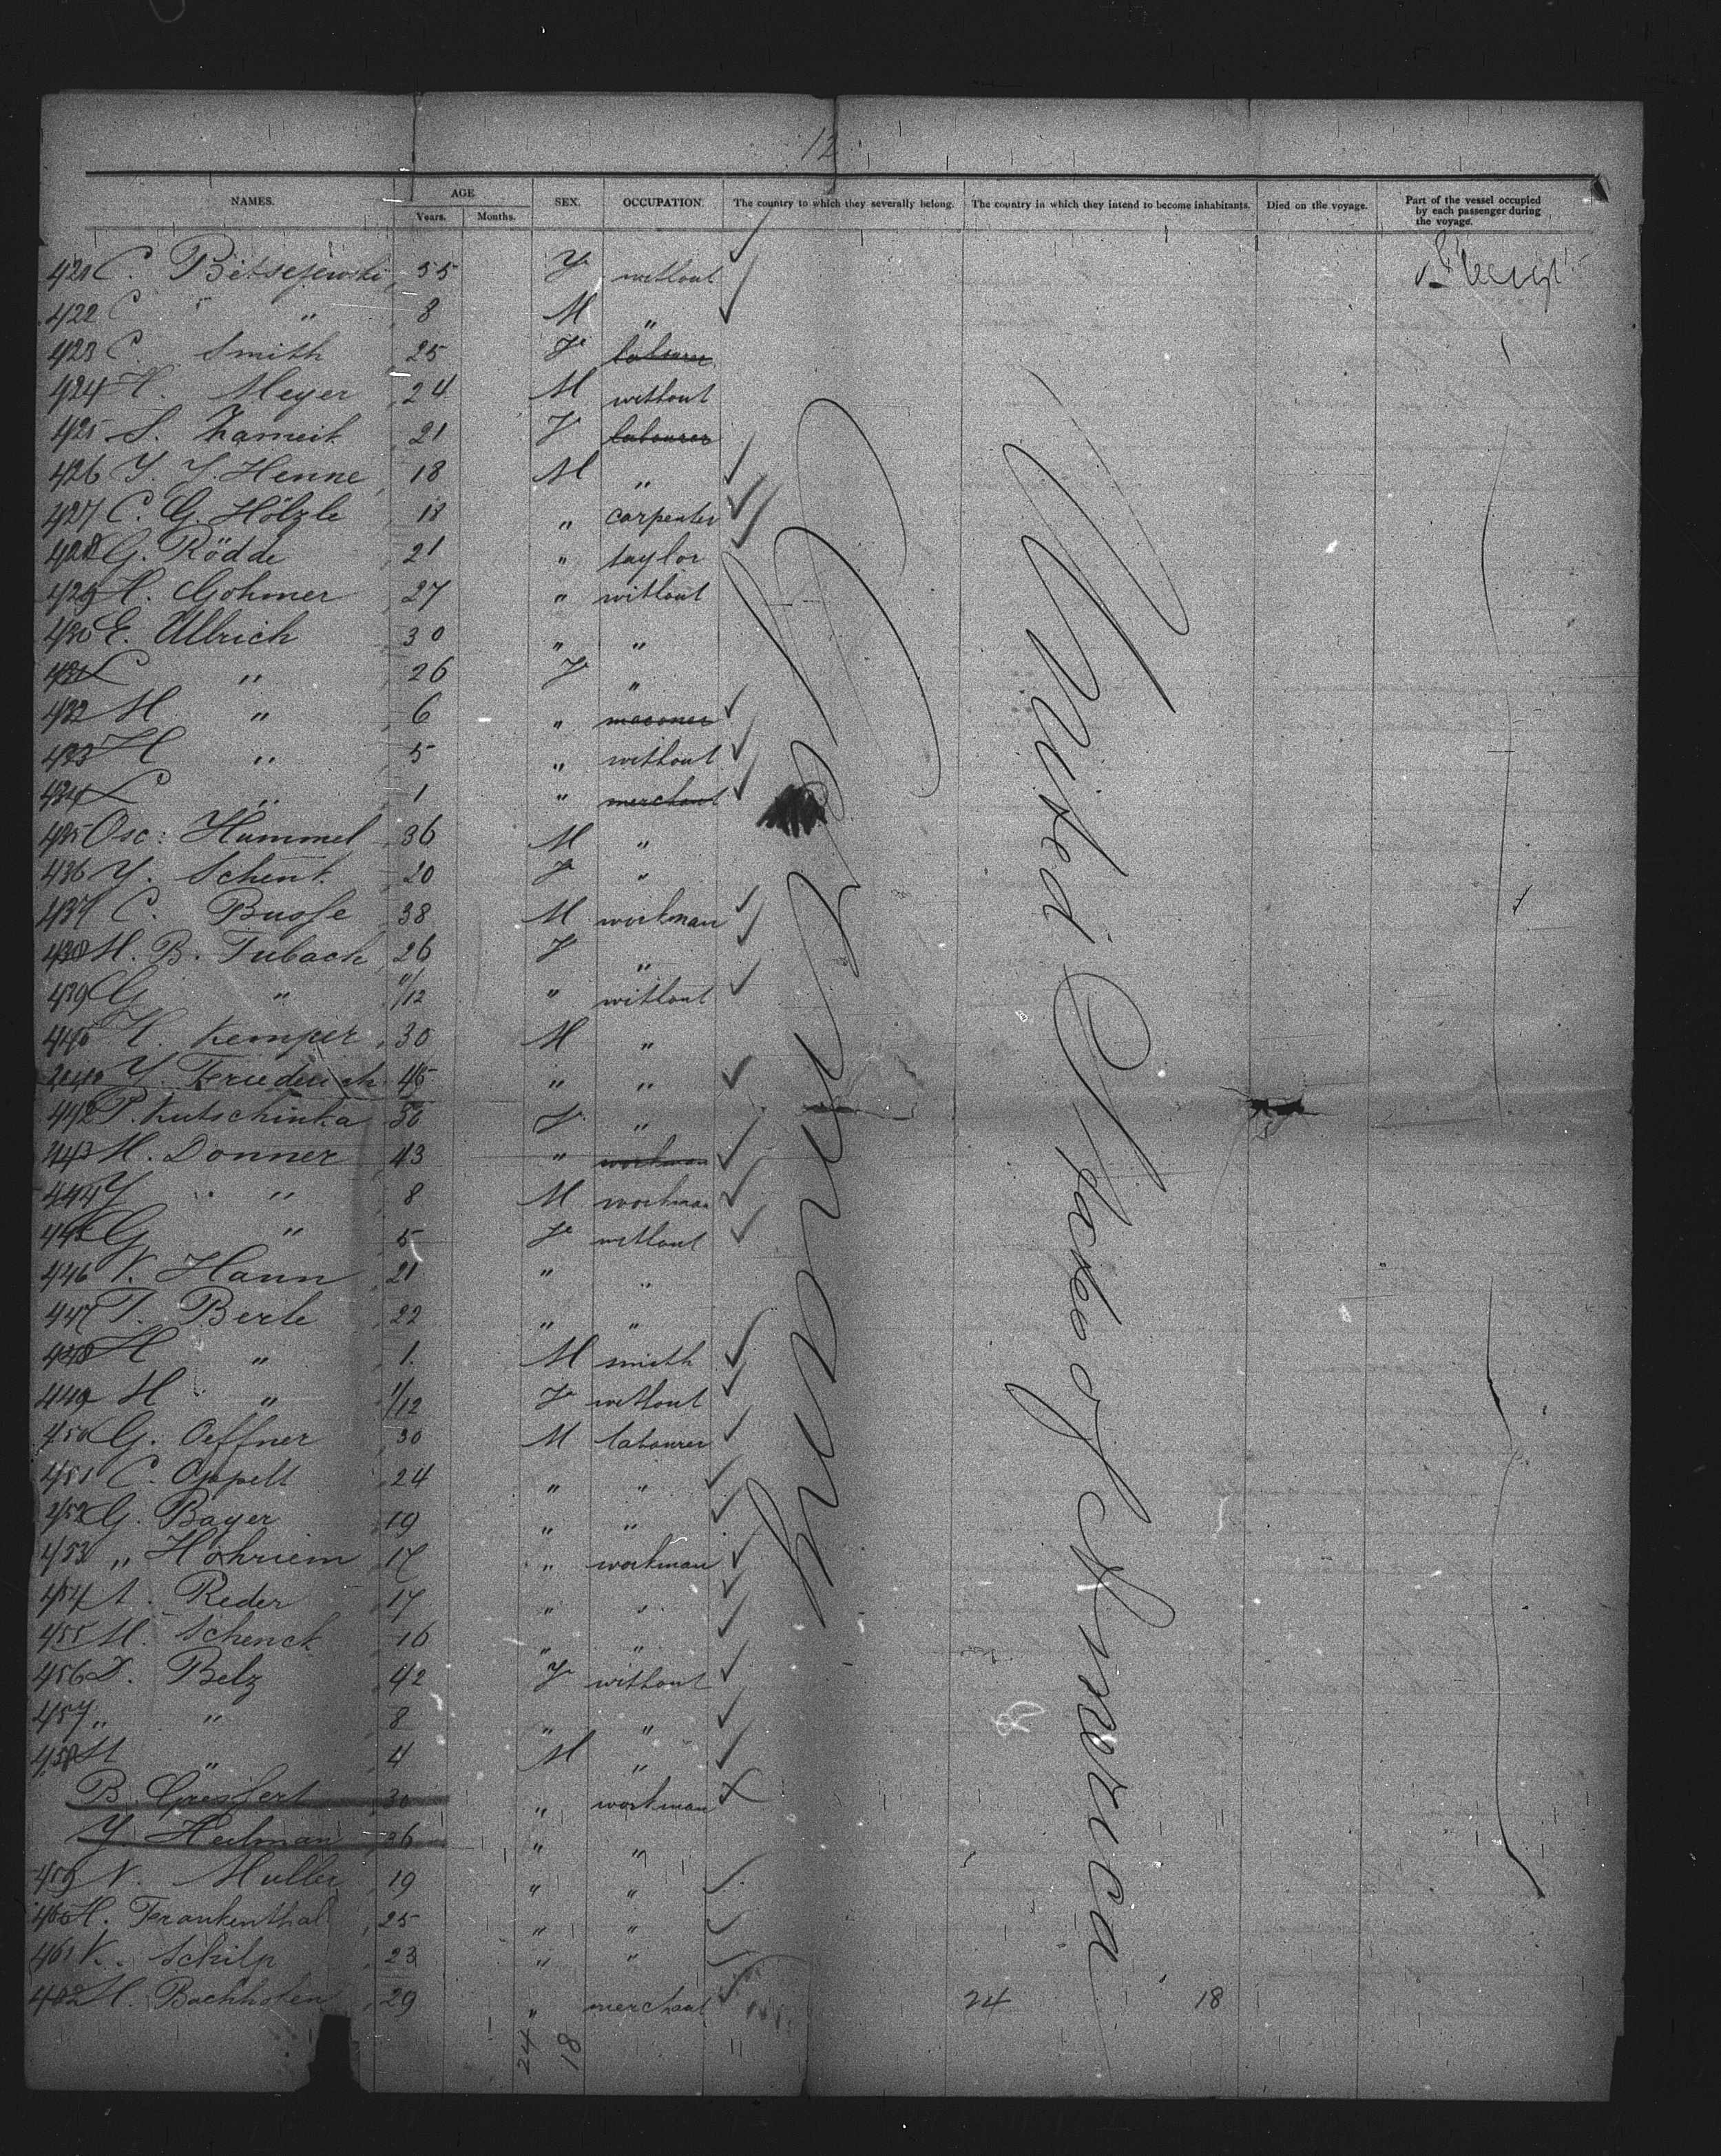 12
NAMES. AGE Years. Months. SEX. OCCUPATION. The country to which they severally belong. The country in which they intend to become inhabitants. Died on the voyage. Part of the vessel occupied by each passenger during the voyage.
421 C. Bitsejewski 55 F without
422 C " 8 M "
423 C. Smith 25 F labourer
424 H. Meyer 24 M without
425 S. Kameit 21 F labourer
426 J. J. Henne 18 M "
427 C. G. Hölzle 18 " carpenter
428 G. Rödde 21 " taylor
429 H. Gohmer 27 " without
430 E. Ullrich 30 " "
431 L " 26 F "
432 M " 6 " masoner
433 H " 5 " without
434 L " 1 " merchant
435 Osc: Hummel 36 M "
436 J. Schenk 20 F "
437 C. Busse 38 M workman
438 M. B. Tubach 26 F "
439 G " 11/12 " without
440 H. Kemper 30 M "
J. Friederich 45 " "
442 P. Kutschinka 56 F "
443 M. Donner 43 " workman
444 J " 8 M workman
445 G " 5 F without
446 K. Hann 21 " "
447 T. Berle 22 " "
448 H " 1 M smith
449 M " 11/12 F without
450 G. Oeffner 30 M labourer
451 C. Oppelt 24 " "
452 G. Bayer 19 " "
453 " Hohriem 17 " workman
454 A. Reder 17 " "
455 M. Schenck 16 " "
456 D. Belz 42 F without
457 " " 8 " "
458 M " 4 M "
B. Griesfert 30 " workman
J. Heilman 26 " "
459 N. Muller 19 " "
460 H. Frankenthal 25 " "
461 K. Schilp 23 " "
462 M. Bachhofen 29 " merchant
Germany
United States of America
24 18
24 18